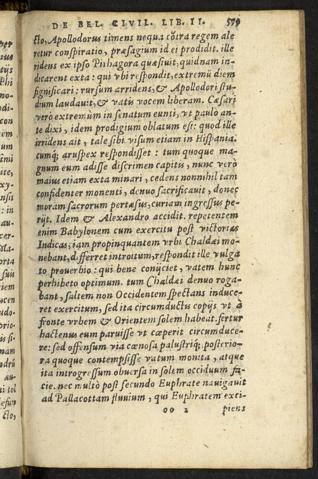 DE BEL. CIVIL. LIB. II. 579
cto, Apollodorus timens nequa cõtra regem ale
retur conspiratio, præsagium id ei prodidit. ille
ridens ex ipso Pythagora quæsiuit, quidnam in-
dicarent exta: qui vbi respondit, extremū diem
significari: rursum arridens, & Apollodori stu-
dium laudauit, & vatis vocem liberam. Cæsari
verò extremùm in senatum eunti, vt paulo an-
te dixi, idem prodigium oblatum est: quod ille
irridens ait, tale sibi visum etiam in Hispania.
cumq́; aruspex respondisset: tum quoque ma-
gnum eum adisse discrimen capitis, nunc verò
maius etiam exta minari, cedens nonnihil tam
confidenter monenti, denuo sacrificauit, donec
moram sacrorum pertæsus, curiam ingressus pe-
rijt. Idem & Alexandro accidit. repetentem
enim Babylonem cum exercitu post victorias
Indicas, iam propinquantem vrbi Chaldæi mo-
nebant, differret introitum, respondit ille vulga
to prouerbio: qui bene conijciet, vatem hunc
perhibeto optimum. tum Chaldæi denuo roga-
bant, saltem non Occidentem spectans induce-
ret exercitum, sed ita circumductis copijs vt à
fronte vrbem & Orientem solem habeat. fertur
hactenus eum paruisse vt cœperit circumduce-
re: sed offensum via cœnosa palustriq́; posterio-
ra quoque contempsisse vatum monita, atque
ita introgressum obuersa in solem occiduum fa-
cie. nec multò post secundo Euphrate nauigauit
ad Pallacottam fluuium, qui Euphratem exci-
oo 2 piens